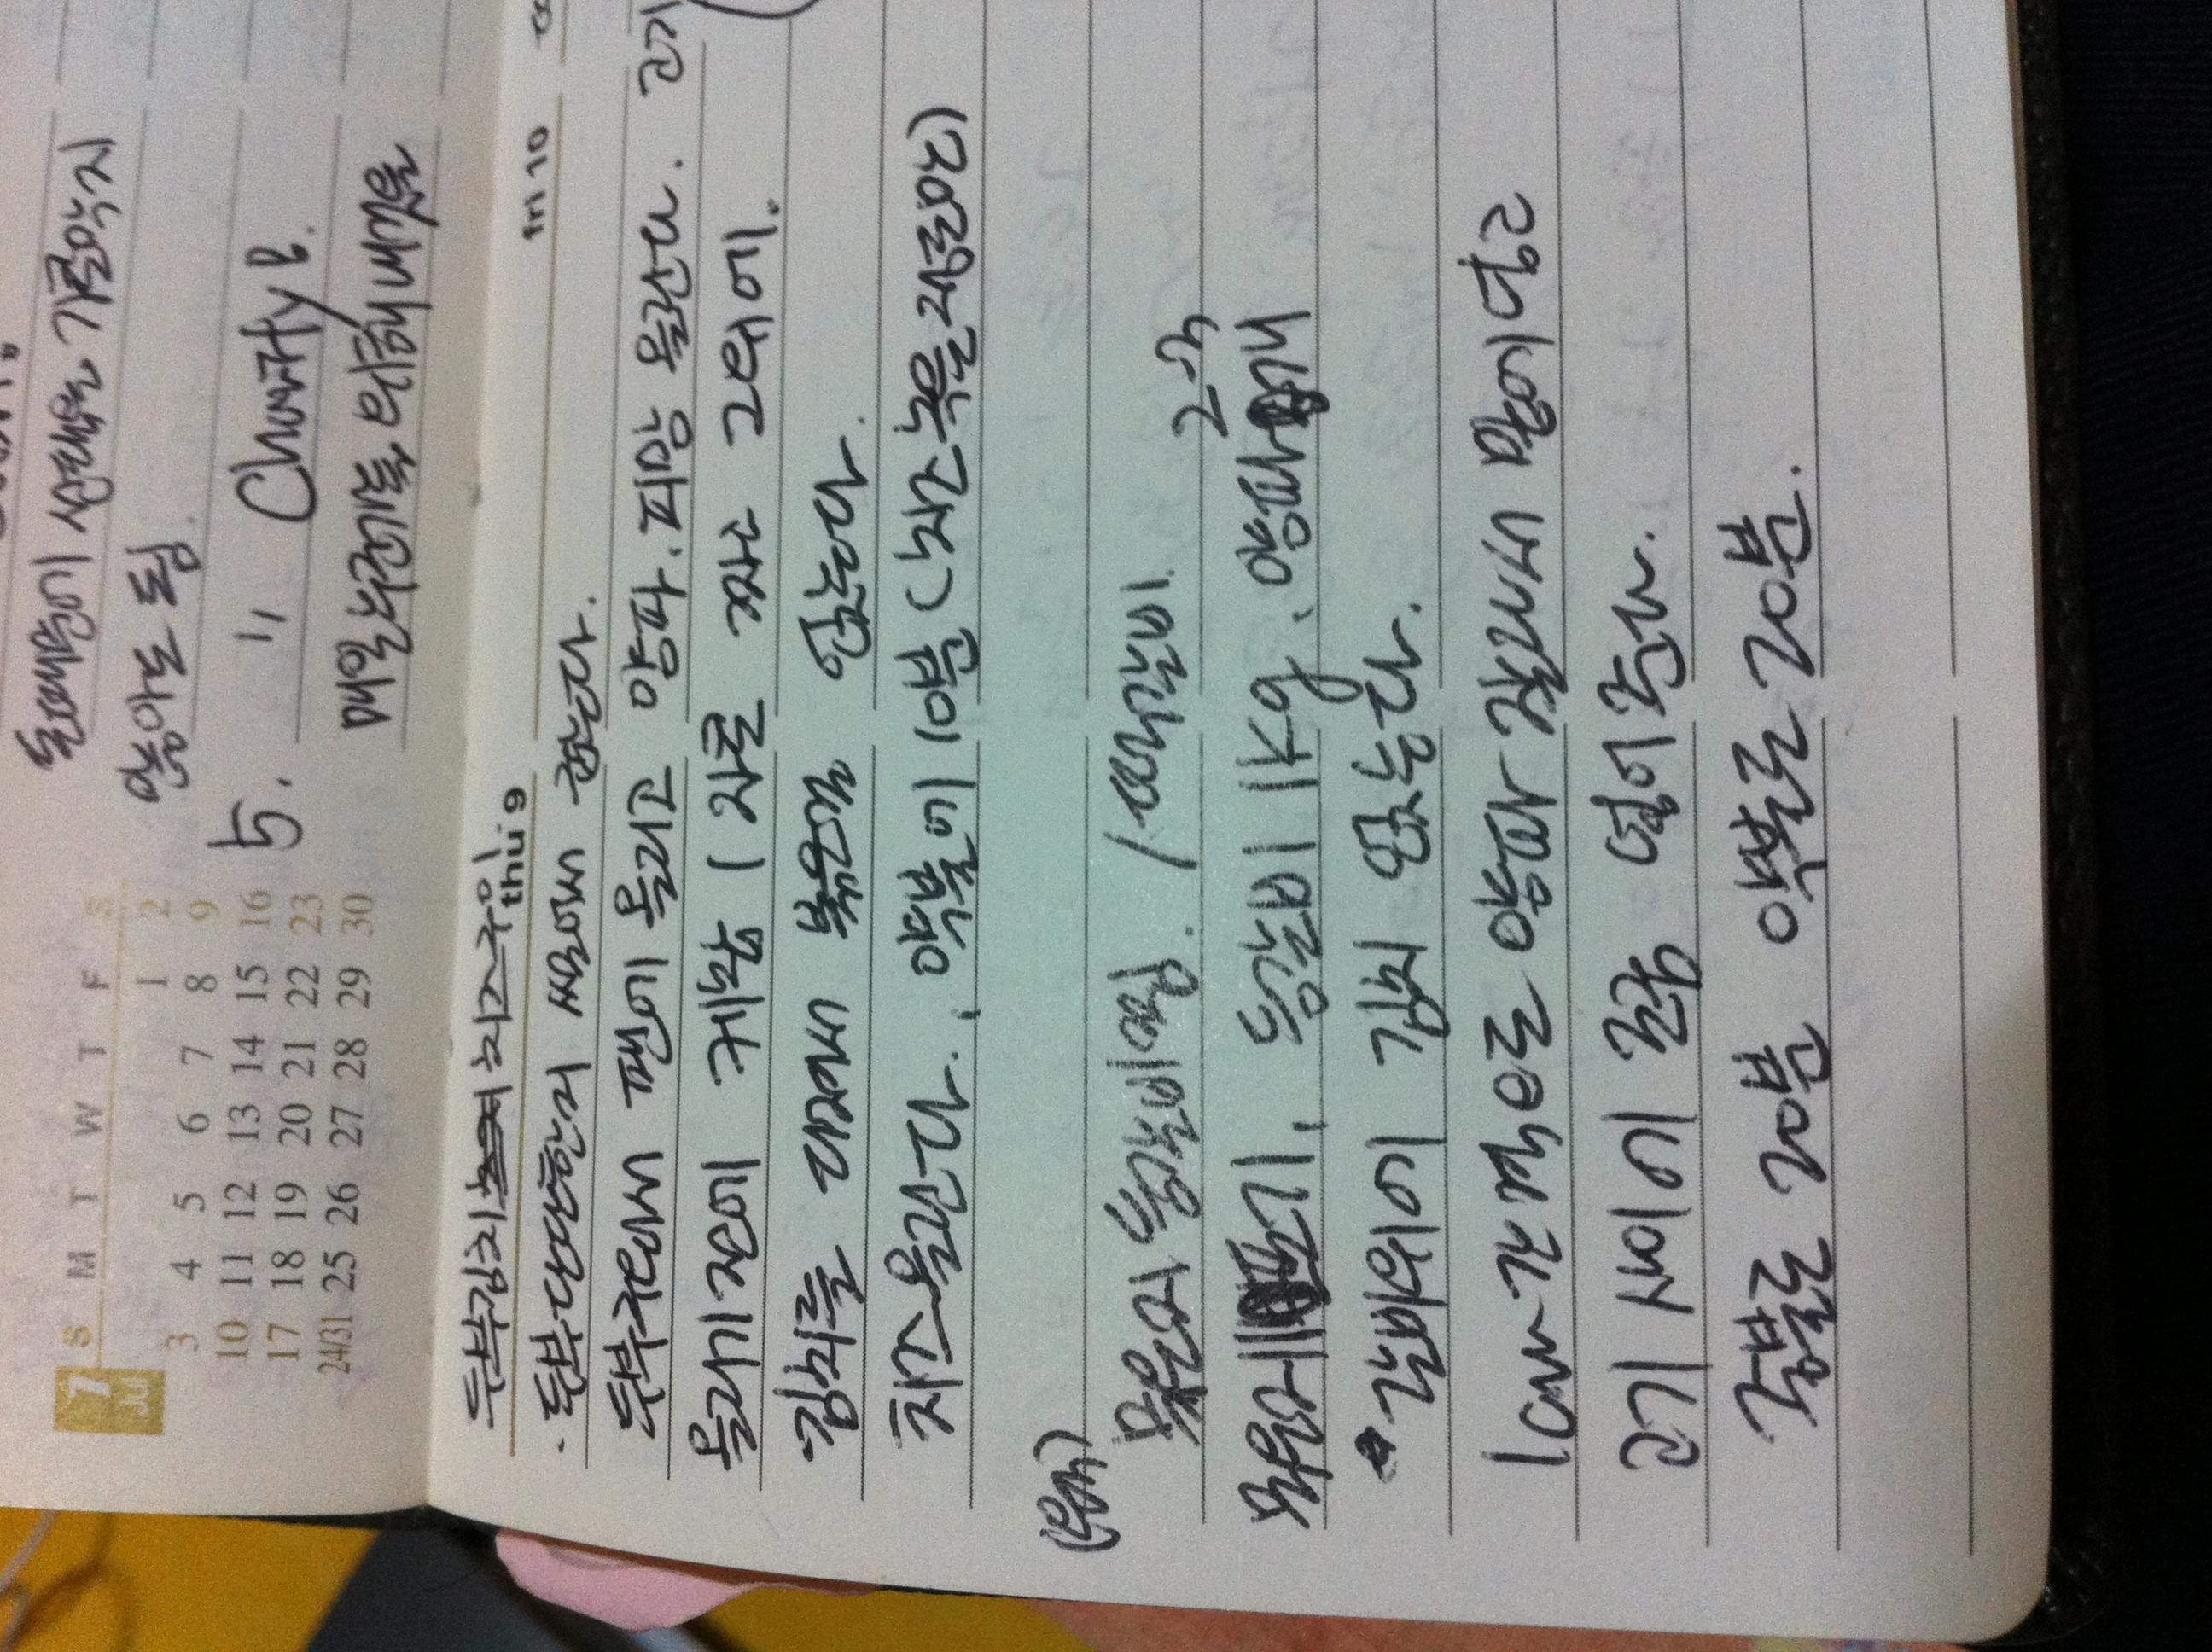 7 Jul
S M T W T F S
1 2
3 4 5 6 7 8 9
10 11 12 13 14 15 16
17 18 19 20 21 22 23
24/31 25 26 27 28 29 30
돈때문에 가로막지
않아도 됨.
5. " Charity B.
매일 누군가를 위해 내것을
두부김치 치즈구이.
thu 9
fri 10
· 두부 단단한지 썰어서 굽는다.
두부구워서 팬에 올리고 양파, 피망 올린다. 고기
올리기전에 케찹 1자로 짜고 그위에.
·김치를 다져서 볶은걸 얹는다.
치즈올린다., 약불에 10분 (치즈 녹을 정도만)
묵은지 등갈비찜. / 떡갈비.
묵은지 포기, 등갈비 1kg, 양파 2-3개
갈비위에 김치 얹는다.
1cm 간격으로 양파 잘라서 망에 넣고
고기 사이에 조금 넣어 준다.
중불로 20분 약불로 20분.